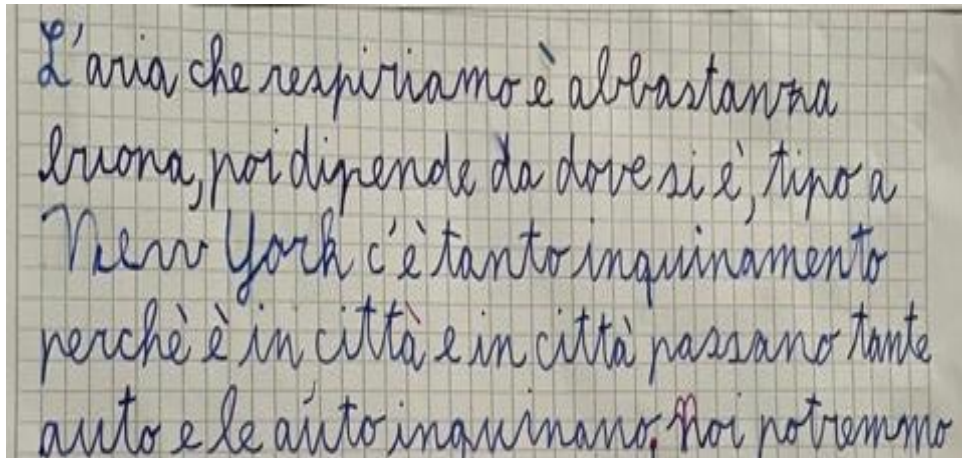 L'aria che respiriamo è abbastanza
buona, poi dipende da dove si è, tipo a
New York c'è tanto inquinamento
perchè è in città e in città passano tante
auto e le auto inquinano. Noi potremmo